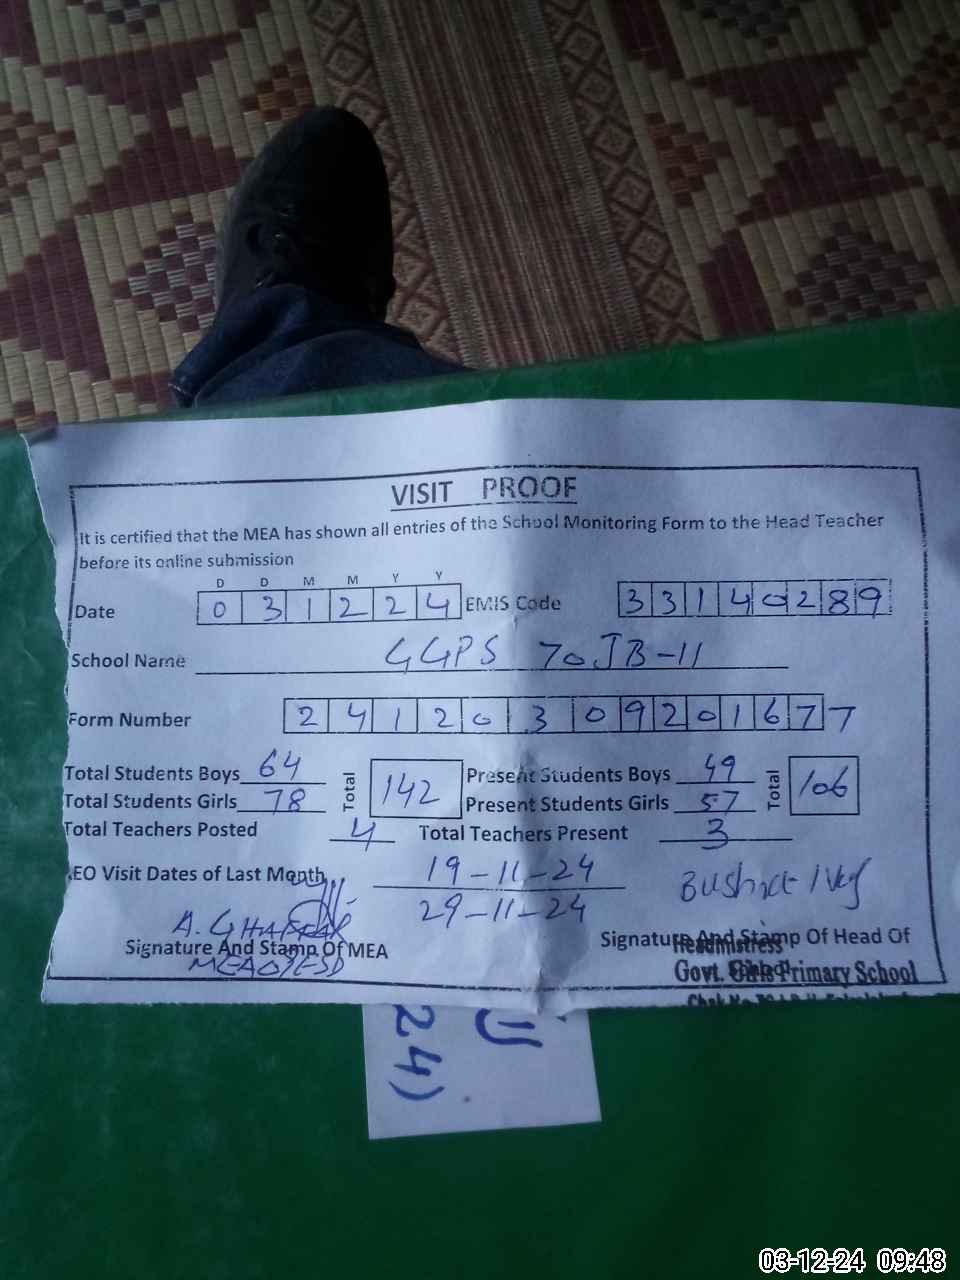 VISIT PROOF
It is certified that the MEA has shown all entries of the School Monitoring Form to the Head Teacher
before its online submission
D D M M Y Y
Date 0 3 1 2 2 4 EMIS Code 3 3 1 4 0 2 8 9
School Name GGPS 70JB-II
Form Number 2 4 1 2 0 3 0 9 2 0 1 6 7 7
Total Students Boys 64 Total 142 Present Students Boys 49 Total 106
Total Students Girls 78 Present Students Girls 57
Total Teachers Posted 4 Total Teachers Present 3
AEO Visit Dates of Last Month 19-11-24
29-11-24
A. GHAFFAR
Signature And Stamp Of MEA Signature And Stamp Of Head Of School
Headmistress
Govt. Girls Primary School
24)
03-12-24 09:48